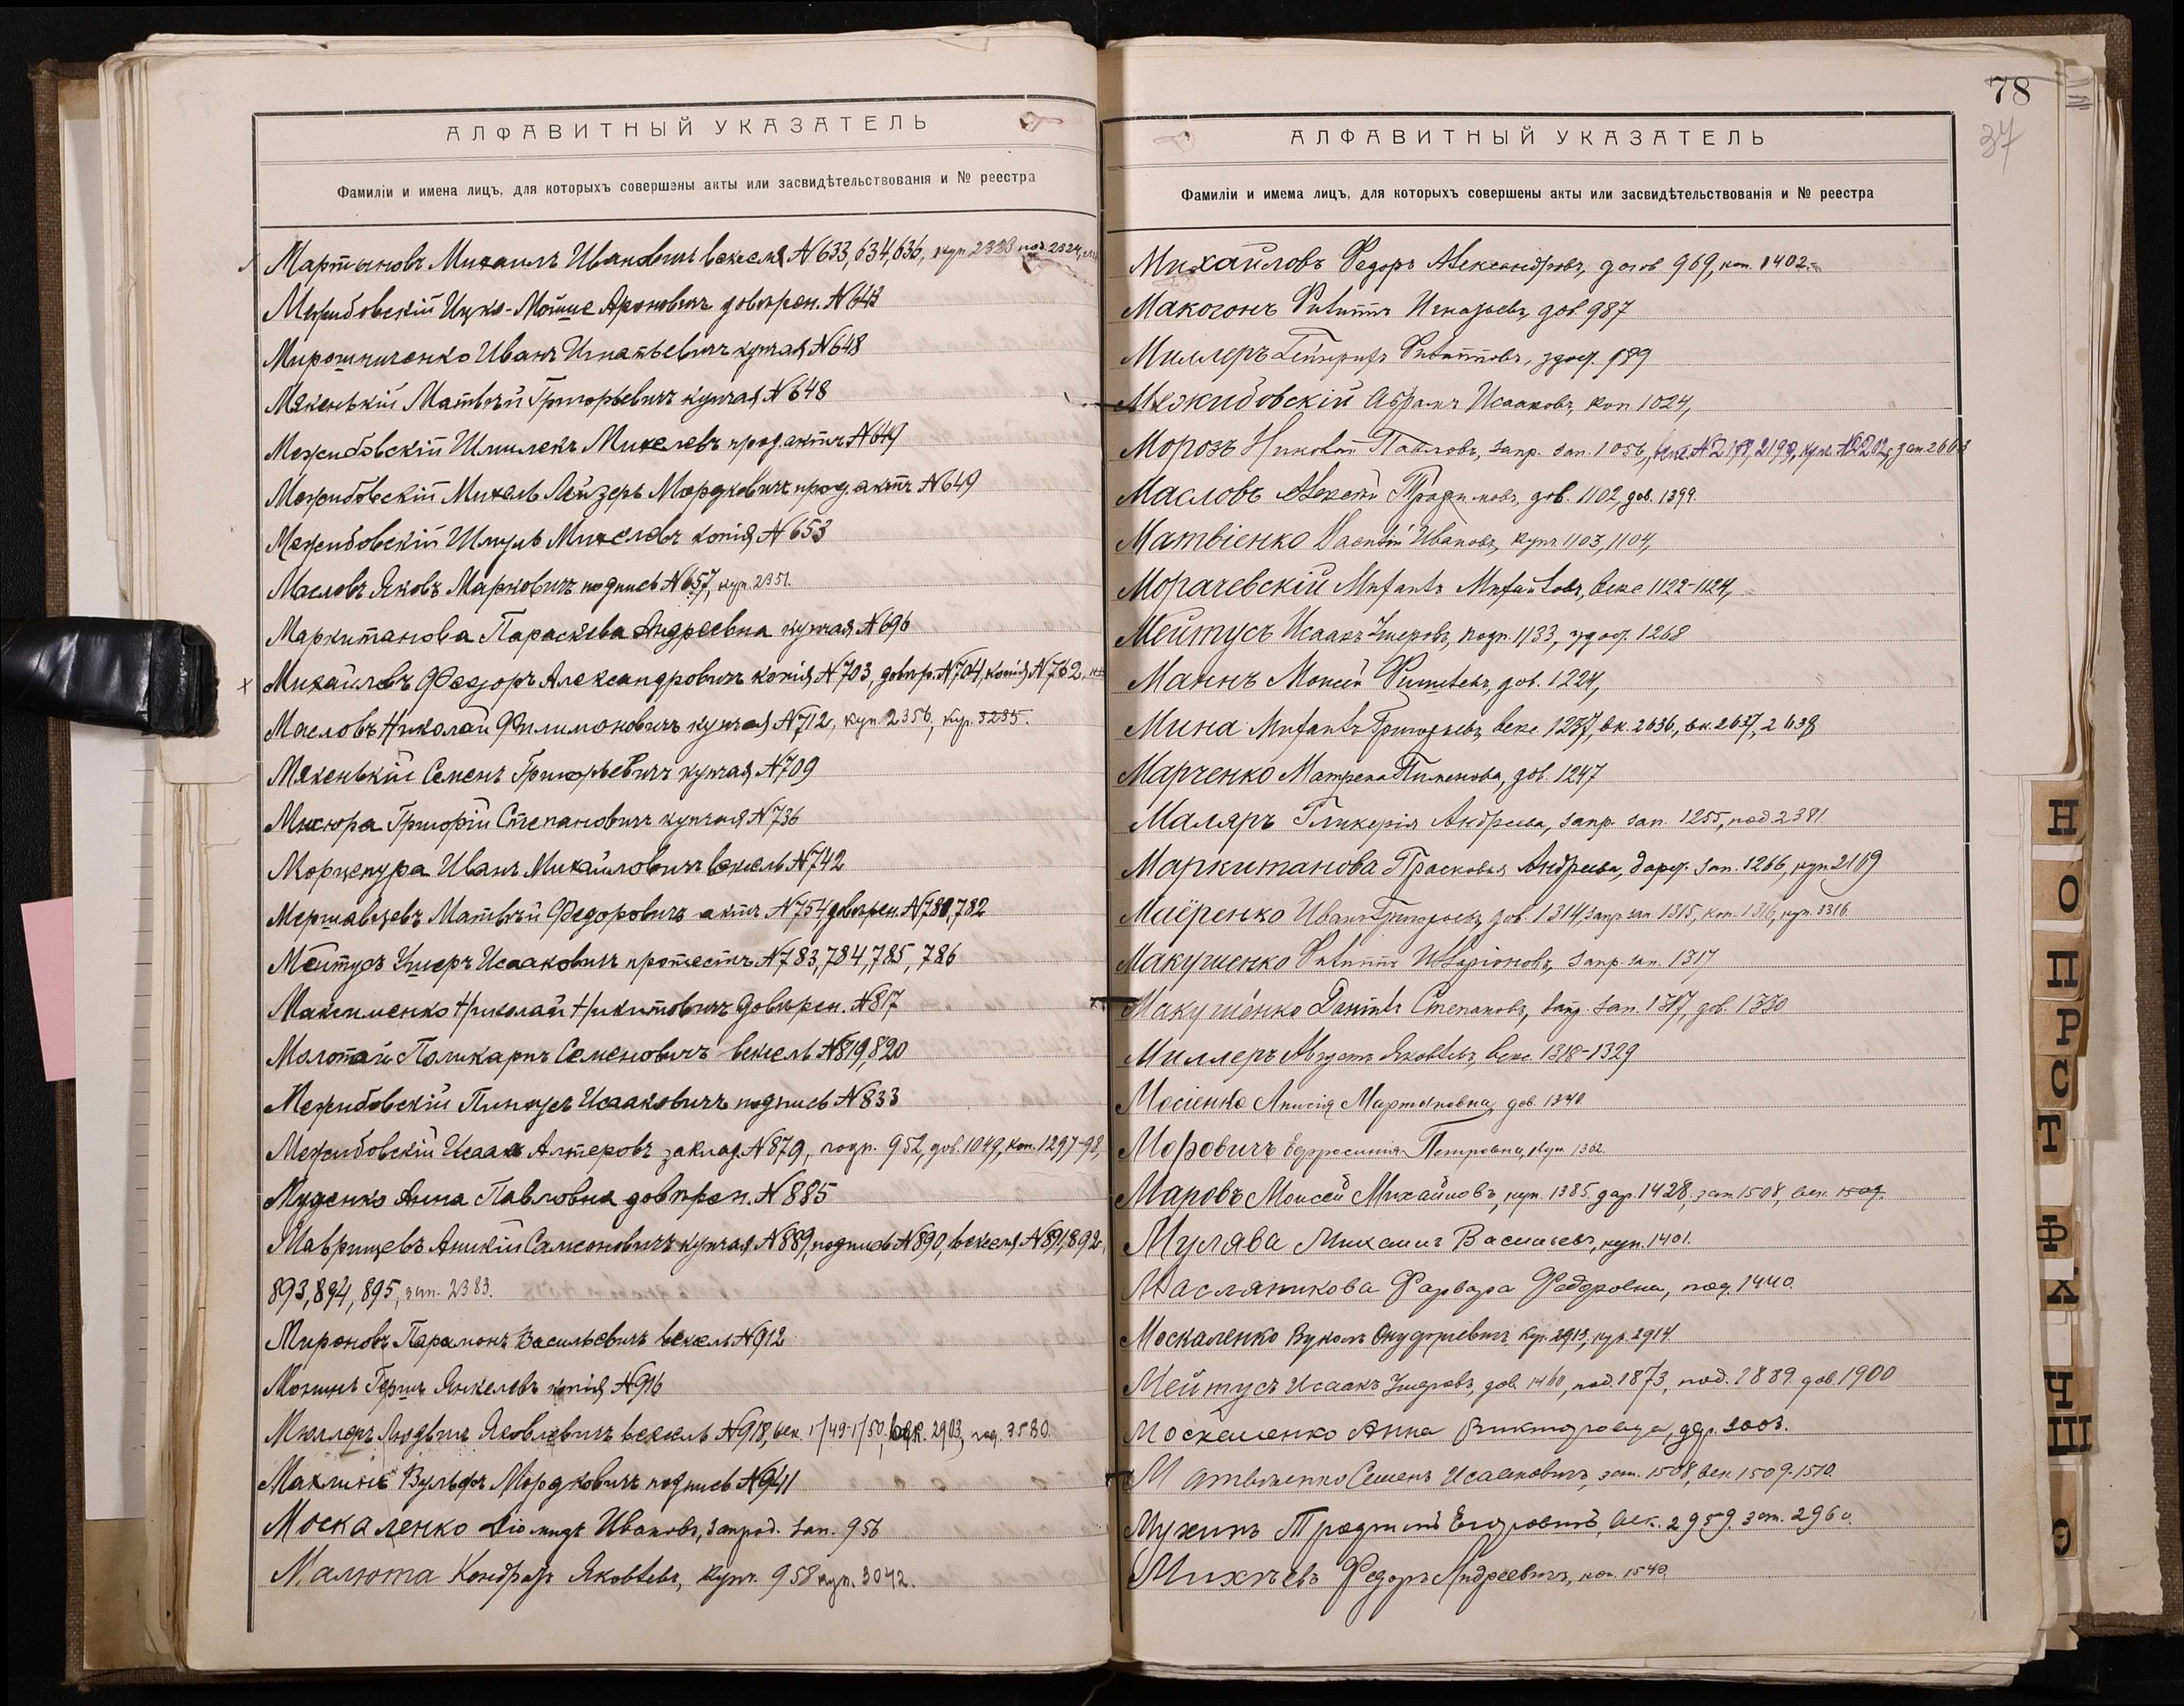 АЛФАВИТНЫЙ УКАЗАТЕЛЬ
Фамиліи и имена лицъ, для которыхъ совершены акты или засвидѣтельствованія и № реестра
Мартыновъ Михаилъ Ивановичъ векселя №633, 634, 636, куп 2323 под. 2324,
Межибовскій Ицко-Мошше Ароновичъ довѣрен. №643
Мирошниченко Иванъ Игнатьевичъ купчая №648
Мякенькій Матвѣй Григорьевичъ купчая №648
Межибовскій Шмилекъ Михелевъ прод. актъ №649
Межибовскій Михель Лейзеръ Мордковичъ прод. актъ №649
Межибовскій Шмуль Михелевъ копія №653
Масловъ Яковъ Марковичъ подпись №657, куп. 2351.
Маркитанова Параскева Андреевна купчая №696
Михайловъ Федоръ Александровичъ копія №703, довѣр. №704, копія №762.
Масловъ Николай Филимоновичъ купчая №712, куп. 2356, кур. 3235.
Мякенькій Семенъ Григорьевичъ купчая №709
Мисюра Григорій Степановичъ купчая №736
Морщепура Иванъ Михайловичъ вексель №742
Мершавцевъ Матвѣй Федоровичъ актъ №754, довѣрен. №780, 782
Мейтусъ Ушеръ Исааковичъ протестъ №783, 784, 785, 786
Максименко Николай Никитовичъ довѣрен. №817
Молотай Поликарпъ Семеновичъ вексель №819, 820
Межибовскій Пинхусъ Исааковичъ подпись №833
Межибовскій Исаакъ Алтеровъ заклад. №879, подп. 952, дов. 1049, коп. 1297-98,
Муденко Анна Павловна довѣрен. №885
Маврищевъ Аникій Самсоновичъ купчая №889, подпись №890, векселя №891, 892
893, 894, 895, зап. 2383.
Мироновъ Парамонъ Васильевичъ вексель №912
Моншнъ Гершъ Янкелевъ копія №916
Мюллеръ Людвигъ Яковлевичъ вексель №918, век. 1749-1750, век. 2903, под. 3580.
Махлинъ Вульфъ Мордковичъ подпись №941
Москаленко Діомидъ Ивановъ, запрод. зап. 956
Малюта Кондратъ Яковлевъ, купч. 958 куп. 3042.
78
37
АЛФАВИТНЫЙ УКАЗАТЕЛЬ
Фамиліи и имема лицъ, для которыхъ совершены акты или засвидѣтельствованія и № реестра
Михайловъ Федоръ Александровъ, догов 969, коп. 1402.
Макогонъ Филиппъ Игнатьевъ, дов. 987
Миллеръ Гейнрихъ Филипповъ, удост. 989
Межибовскій Абрамъ Исааковъ, коп 1024,
Морозъ Николай Павловъ, запр. зап. 1056, век. №2198, 2199, купч. №2202, зап 2663
Масловъ Алексѣй Трофимовъ, дов. 1102, дов. 1399.
Матвіенко Василій Ивановъ, купч 1103, 1104,
Морачевскій Михаилъ Михайловъ, векс 1122-1124,
Мейтусъ Исаакъ Ушеровъ, подп. 1133, удост. 1268
Маннъ Мойсей Филиповъ, дов. 1224,
Мина Михаилъ Григорьевъ, векс. 1237, вк. 2636, вк. 2637, 2638
Марченко Матрена Пименова, дов. 1247
Маляръ Гликерія Андреева, запр. зап. 1255, под 2381.
Маркитанова Прасковья Андреева, дарст. зап. 1266, куп 2169
Маёренко Иванъ Григорьевъ, дов. 1314, запр. зап. 1315, коп. 1316, куп. 3316.
Макушенко Филиппъ Илларіоновъ, запр. зап. 1317
Макушенко Даніилъ Степановъ, запр. зап. 1317, дов. 1330
Миллеръ Августъ Яковлевъ, векс. 1318-1329
Мосіенко Анисія Мартыновна, дов. 1340.
Моровичъ Ефросинія Петровна, куп 1362.
Маровъ Моисей Михайловъ, куп. 1385. дар. 1428, зап 1508, век. 1509.
Мулява Михаилъ Васильевъ, куп. 1401.
Масляникова Варвара Федоровна, под. 1440.
Москаленко Вуколъ Онуфріевичъ, кур. 2913, кур. 2914.
Мейтусъ Исаакъ Ушеровъ, дов. 1460, под. 1873, под. 1889. дов. 1900
Москаленко Анна Викторовна, дар. 2003.
Матвѣенко Семенъ Исааковичъ, зап. 1508, век. 1509-1510.
Мухинъ Трофимъ Егоровичъ, век. 2959. зап. 2960.
Михѣевъ Федоръ Андреевичъ, коп. 1540.
Н
О
П
Р
С
Т
Ф
Х
Ч
Ш
Э